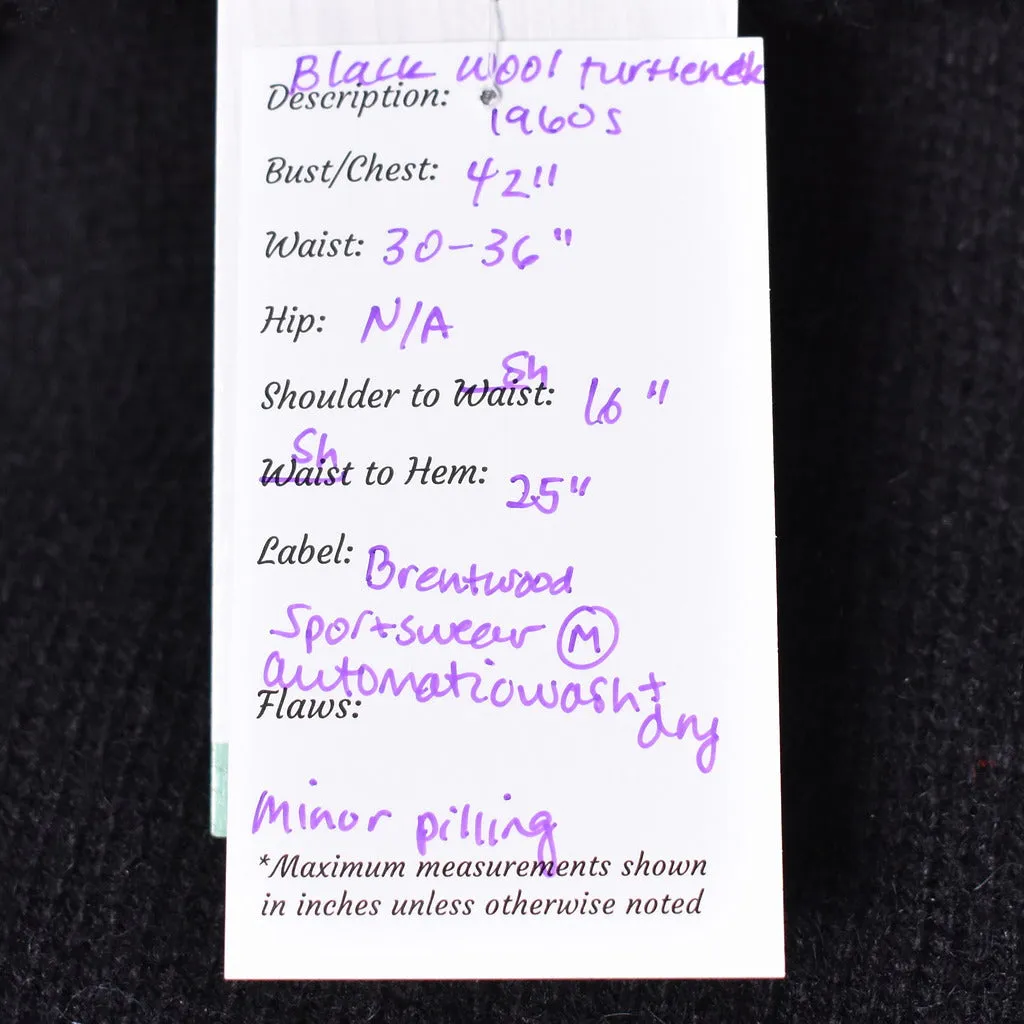 Black wool turtleneck
Description:
1960s
Bust/Chest: 42"
Waist: 30-36"
Hip: N/A
Sh
Shoulder to Waist: 16"
Sh
Waist to Hem: 25"
Label: Brentwood
Sportswear M
automatic wash +
Flaws: dry
Minor pilling
*Maximum measurements shown
in inches unless otherwise noted